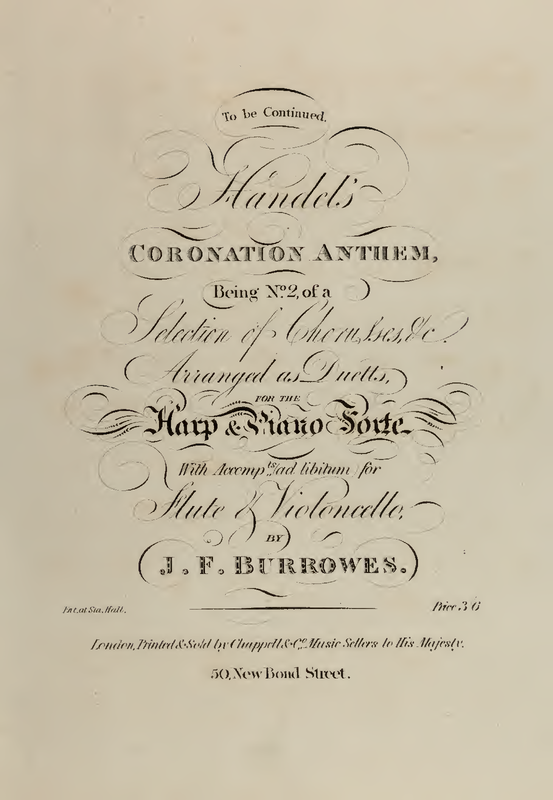 To be Continued.
Handel's
CORONATION ANTHEM,
Being No. 2, of a
Selection of Chorusses, &c.
Arranged as Duetts,
FOR THE
Harp & Piano Forte
With Accompts. ad libitum for
Flute & Violoncello,
BY
J. F. BURROWES.
Ent. at Sta. Hall.
Price 3/6
London, Printed & Sold by Chappell & Co. Music Sellers to His Majesty.
50, New Bond Street.